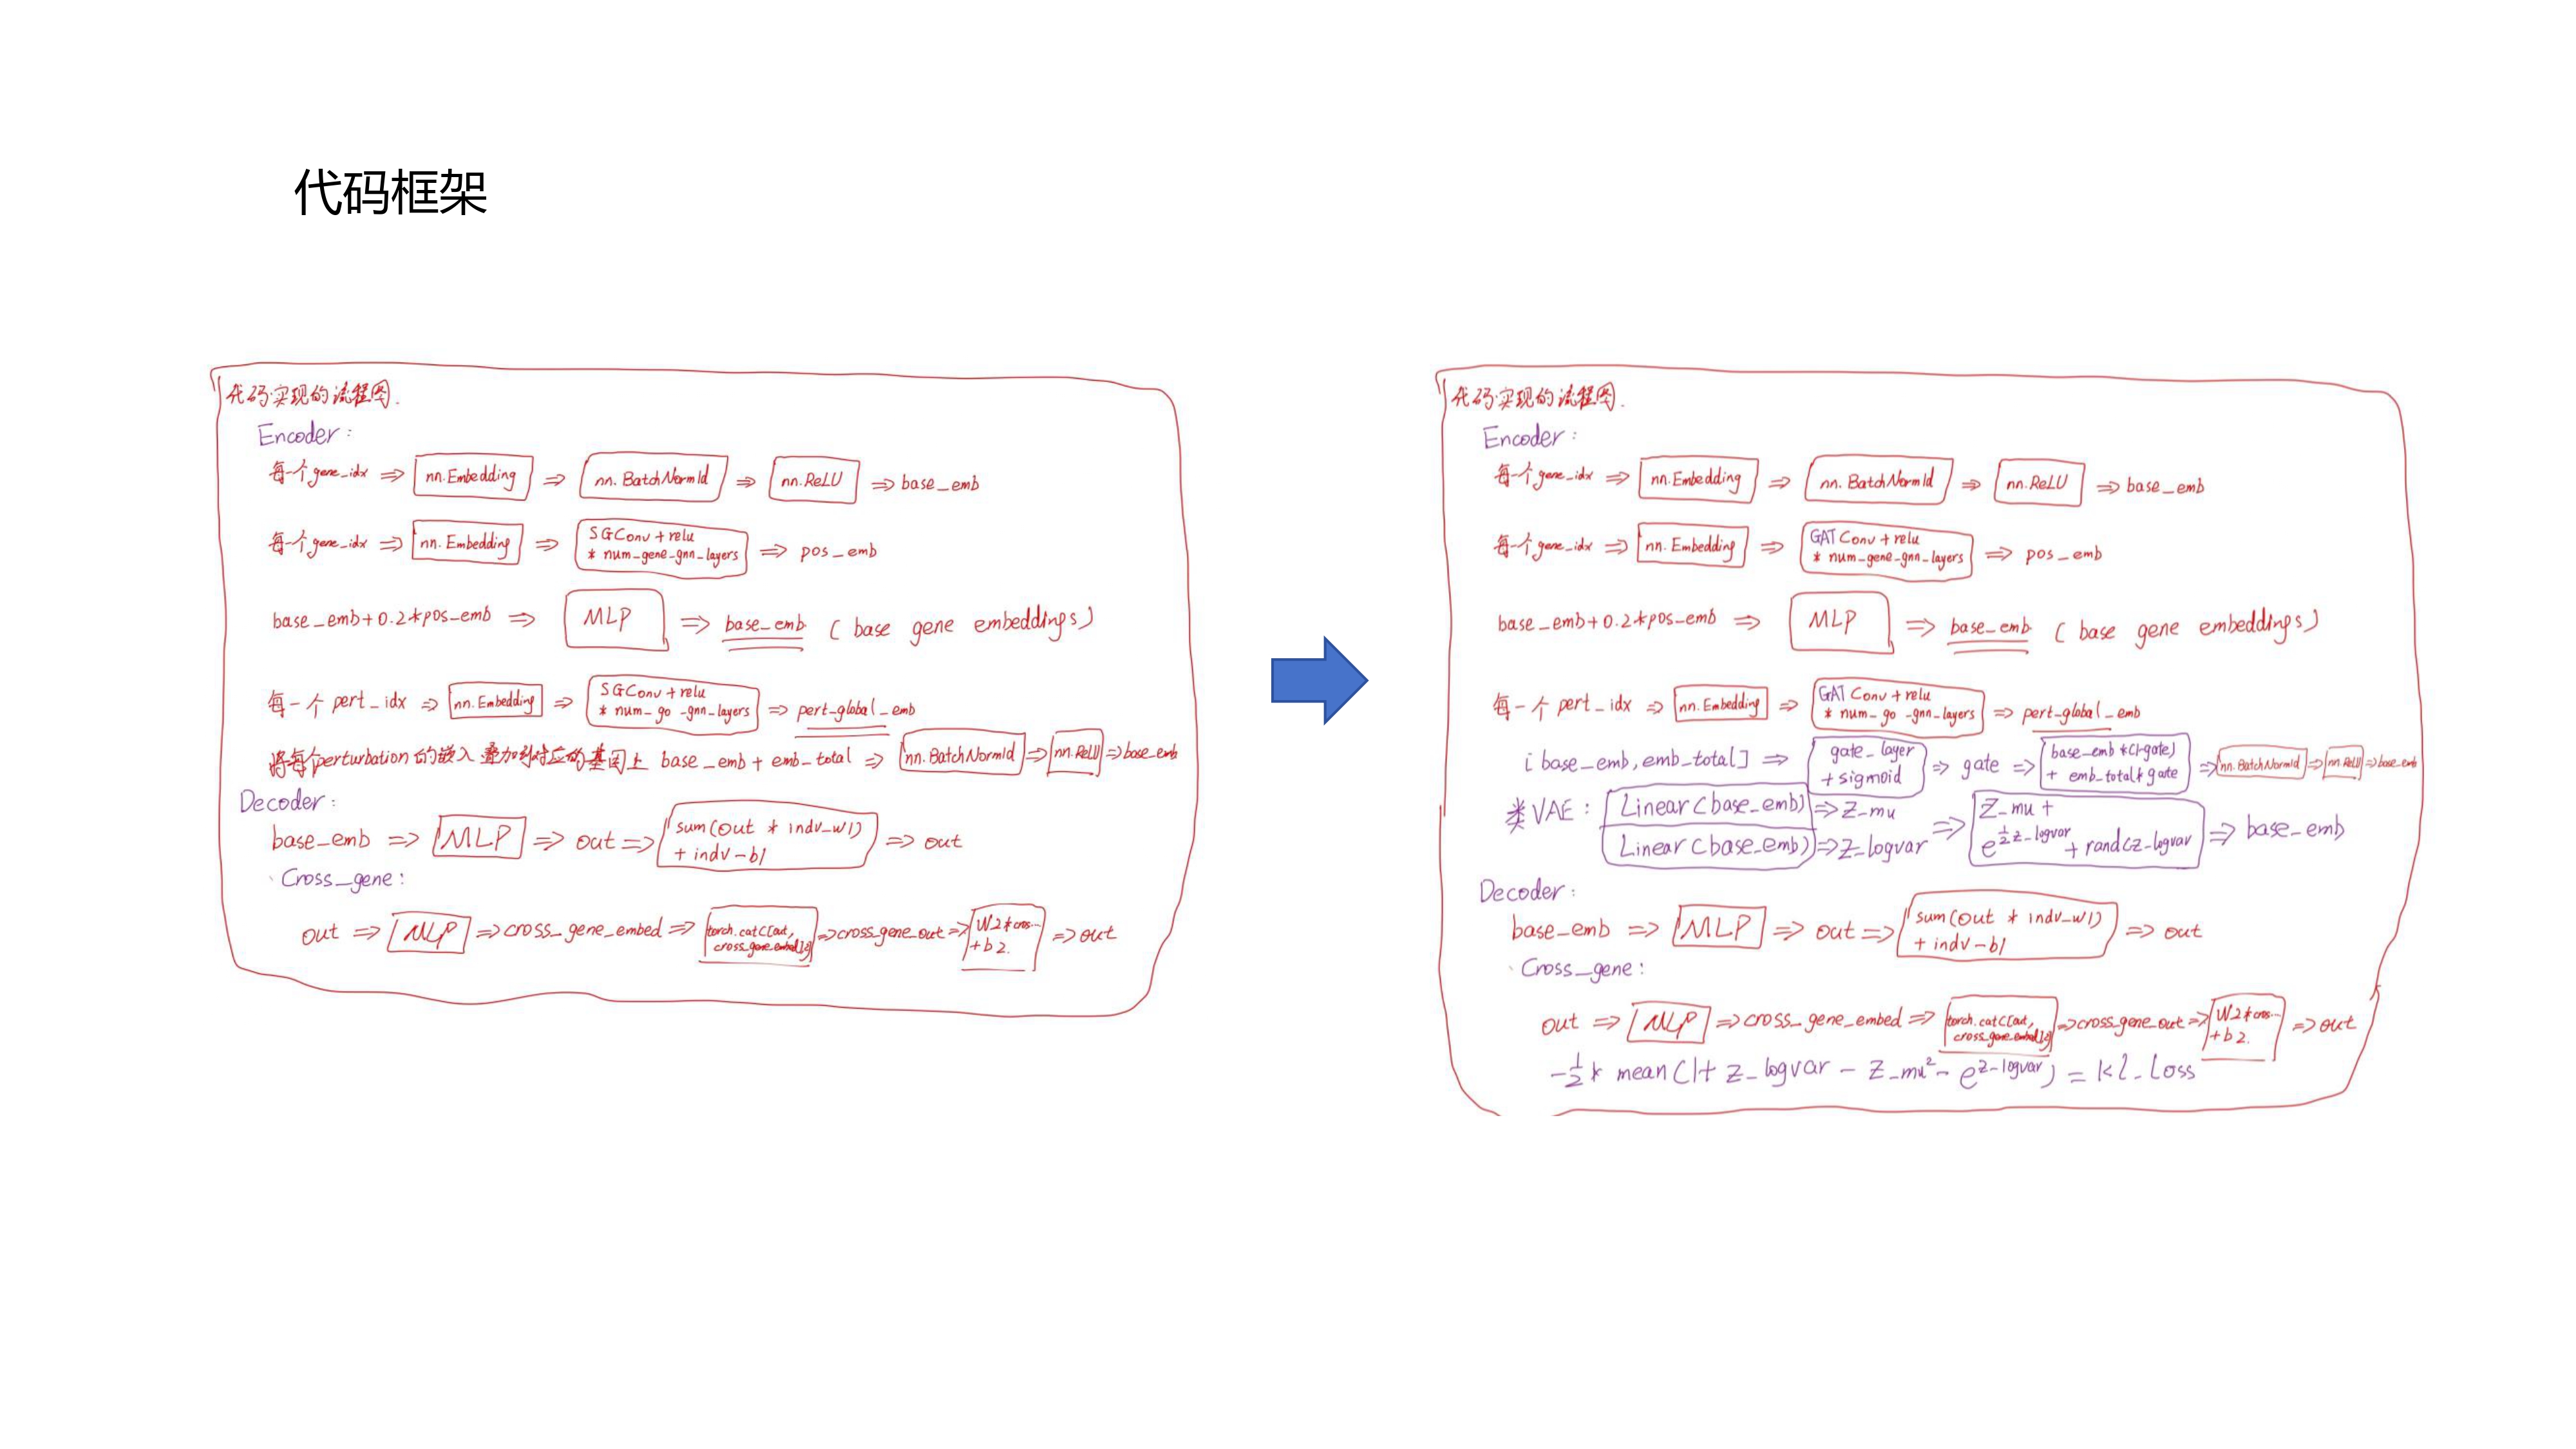 代码框架
代码实现的流程图.
Encoder:
每一个gene_idx ⇒ nn.Embedding ⇒ nn.BatchNorm1d ⇒ nn.ReLU ⇒ base_emb
每一个gene_idx ⇒ nn.Embedding ⇒ SGConv + relu
* num_gene_gnn_layers ⇒ pos_emb
base_emb+0.2*pos_emb ⇒ MLP ⇒ base_emb (base gene embeddings)
每一个 pert_idx ⇒ nn.Embedding ⇒ SGConv + relu
* num_go_gnn_layers ⇒ pert_global_emb
将每个perturbation的嵌入叠加到对应的基因上 base_emb + emb_total ⇒ nn.BatchNorm1d ⇒ nn.ReLU ⇒ base_emb
Decoder:
base_emb ⇒ MLP ⇒ out ⇒ sum(out * indv_w1)
+ indv_b1 ⇒ out
Cross_gene:
out ⇒ MLP ⇒ cross_gene_embed ⇒ torch.cat([out,
cross_gene_embed],2) ⇒ cross_gene_out ⇒ W2*cros...
+b2. ⇒ out
代码实现的流程图.
Encoder:
每一个gene_idx ⇒ nn.Embedding ⇒ nn.BatchNorm1d ⇒ nn.ReLU ⇒ base_emb
每一个gene_idx ⇒ nn.Embedding ⇒ GATConv + relu
* num_gene_gnn_layers ⇒ pos_emb
base_emb+0.2*pos_emb ⇒ MLP ⇒ base_emb (base gene embeddings)
每一个 pert_idx ⇒ nn.Embedding ⇒ GATConv + relu
* num_go_gnn_layers ⇒ pert_global_emb
[base_emb, emb_total] ⇒ gate_layer
+ sigmoid ⇒ gate ⇒ base_emb*(1-gate)
+ emb_total*gate ⇒ nn.BatchNorm1d ⇒ nn.ReLU ⇒ base_emb
类VAE: Linear(base_emb) ⇒ z_mu
Linear(base_emb) ⇒ z_logvar ⇒ z_mu +
e^{½z_logvar} + rand(z_logvar ⇒ base_emb
Decoder:
base_emb ⇒ MLP ⇒ out ⇒ sum(out * indv_w1)
+ indv_b1 ⇒ out
Cross_gene:
out ⇒ MLP ⇒ cross_gene_embed ⇒ torch.cat([out,
cross_gene_embed],2) ⇒ cross_gene_out ⇒ W2*cros...
+b2. ⇒ out
-½* mean(1+ z_logvar - z_mu² - e^{z_logvar}) = kl_loss